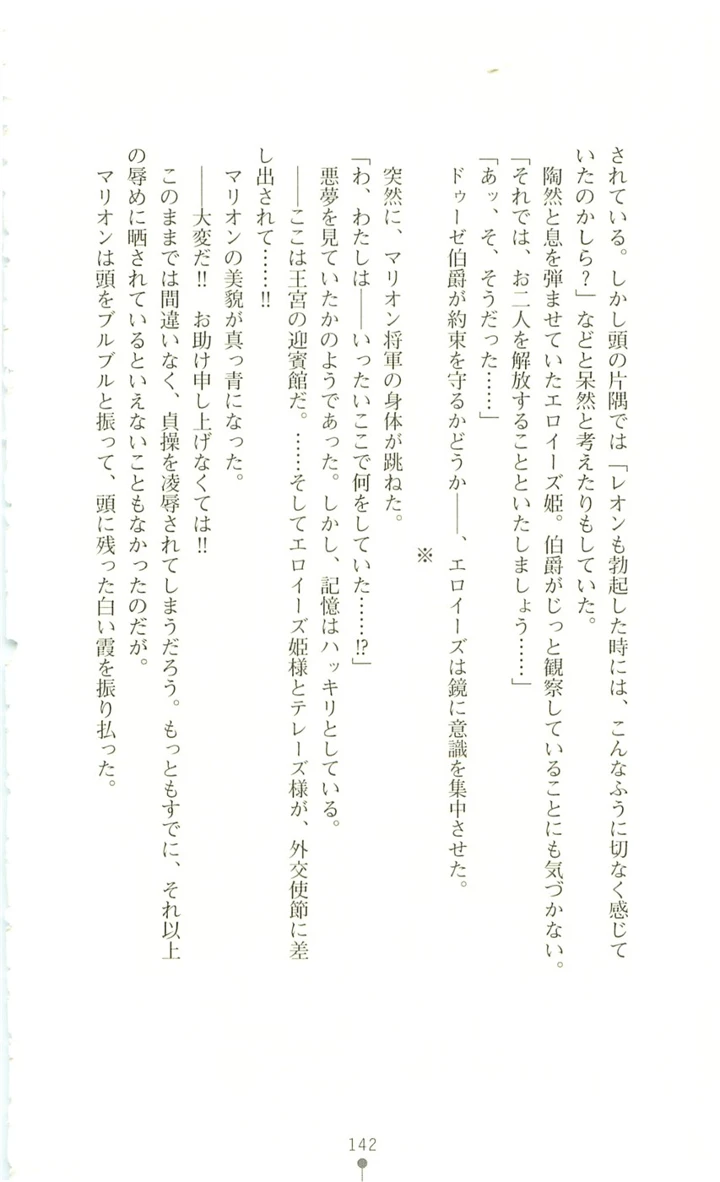 されている。しかし頭の片隅では「レオンも勃起した時には、こんなふうに切なく感じて
いたのかしら？」などと呆然と考えたりもしていた。
陶然と息を弾ませていたエロイーズ姫。伯爵がじっと観察していることにも気づかない。
「それでは、お二人を解放することといたしましょう……」
「あッ、そ、そうだった……」
ドゥーゼ伯爵が約束を守るかどうか――、エロイーズは鏡に意識を集中させた。
※
突然に、マリオン将軍の身体が跳ねた。
「わ、わたしは――いったいここで何をしていた……!?」
悪夢を見ていたかのようであった。しかし、記憶はハッキリとしている。
――ここは王宮の迎賓館だ。……そしてエロイーズ姫様とテレーズ様が、外交使節に差
し出されて……!!
マリオンの美貌が真っ青になった。
――大変だ!!　お助け申し上げなくては!!
このままでは間違いなく、貞操を凌辱されてしまうだろう。もっともすでに、それ以上
の辱めに晒されているといえないこともなかったのだが。
マリオンは頭をブルブルと振って、頭に残った白い霞を振り払った。
142